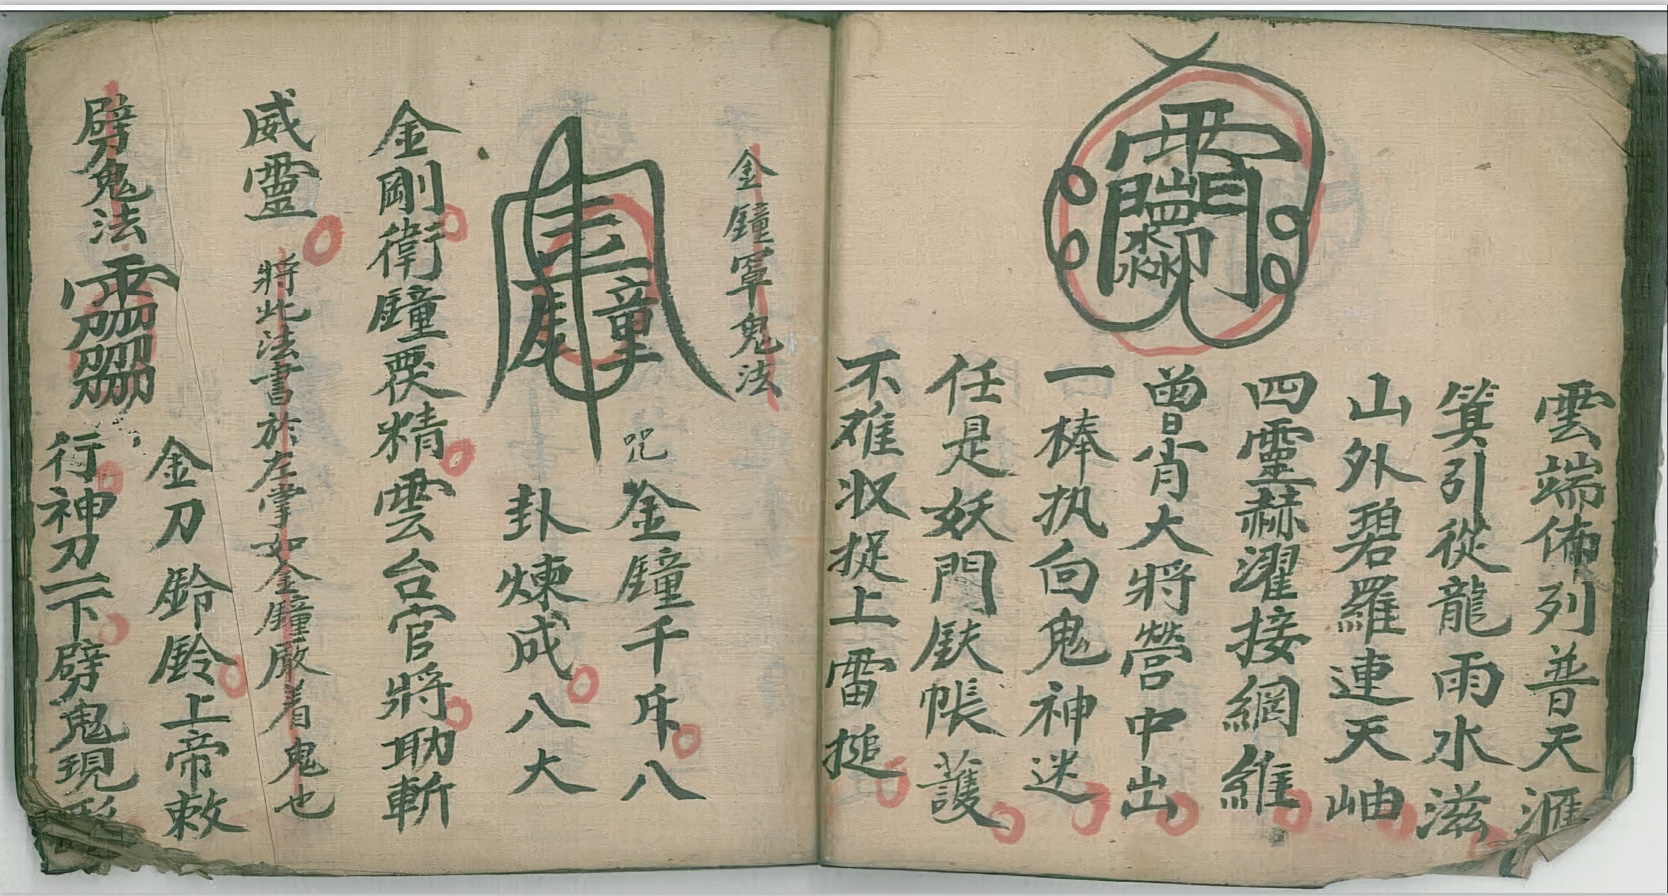 雲端佈列普天
箕引從龍雨水滋
山外碧羅連天岫
四靈赫濯接網維
曾肖大將營中出
一棒执向鬼神迷
任是妖門鈇帳護
不难收捉上雷搥
金鐘罩鬼法
咒 金鐘千斥八
卦煉成八大
金剛衛鐘褁精雲台官將助斬
威靈 將此法書於左掌如金鐘厰着鬼也
劈鬼法
金刀鈴鈴上帝敕
行神刀一下劈鬼現形